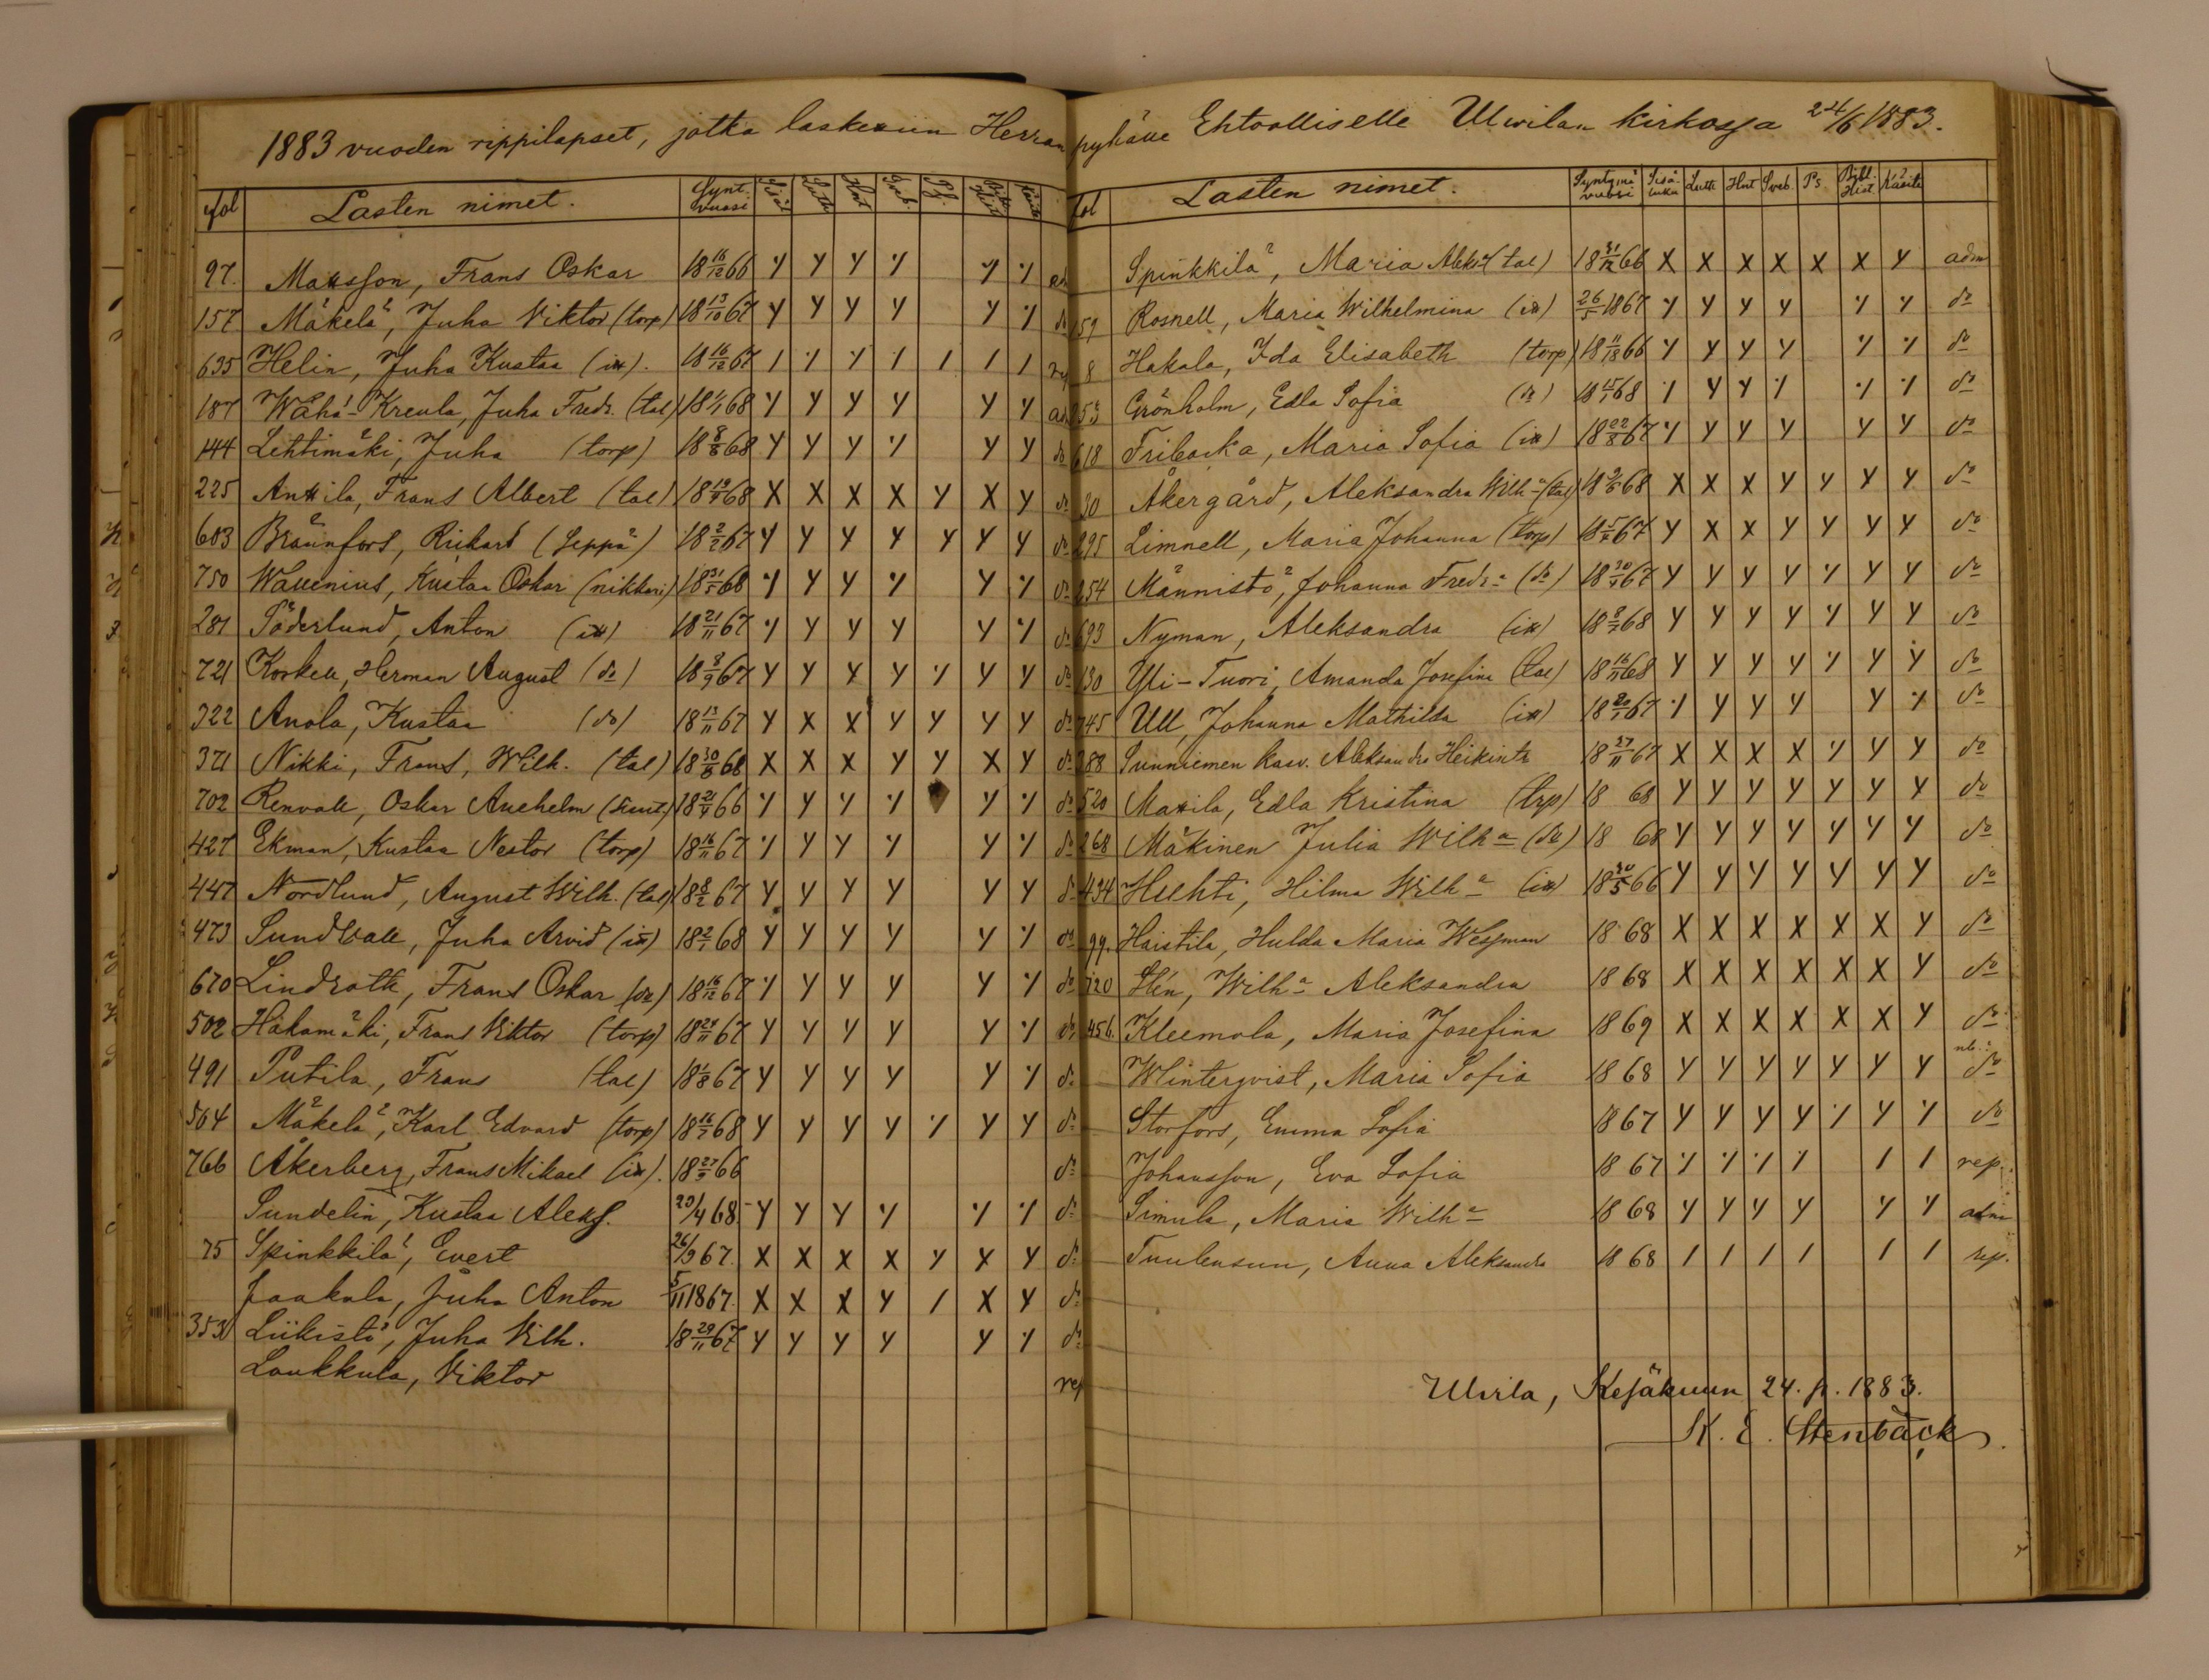 1883 vuoden rippilapset, jotka laskettiin Herran pyhälle Ehtoolliselle Ulwilan kirkossa 24/6 1883.
fol Lasten nimet. Synt. vuosi Luth Hnt Sveb. Ps. Bibl. Hist Käsite
97. Matsson, Frans Oskar 18 16/12 66 y y y y y y
157 Mäkelä, Juha Viktor (torp) 18 13/10 67 y y y y y y do
635 Helin, Juha Kustaa (itt). 18 16/12 67 / y y / / / / rep
187 Wähä-Kreula, Juha Fredr. (tal) 18 1/1 68 y y y y y y ad
144 Lehtimäki, Juha (torp) 18 8/8 68 y y y y y y do
225 Anttila, Frans Albert (tal) 18 19/4 68 X X X X y X y do
603 Braunfors, Rickard (Seppä) 18 2/2 67 y y y y y y y do
750 Wallenius, Kustaa Oskar (nikkari) 18 31/5 68 y y y y y y do
281 Söderlund, Anton (itt) 18 21/11 67 y y y y y y do
721 Korkell, Herman August (do) 18 8/9 67 y y y y y y y do
322 Anola, Kustaa (do) 18 13/11 67 y X X y y y y do
371 Nikki, Frans, Wilh. (tal) 18 30/8 68 X X X y y X y do
702 Renvall, Oskar Anchelm 18 21/4 66 y y y y y y do
427 Ekman, Kustaa Nestor (torp) 18 16/11 67 y y y y y y do
447 Nordlund, August Wilh. (tal) 18 8/2 67 y y y y y y do
473 Sundvall, Juha Arvid (itt) 18 2/1 68 y y y y y y do
670 Lindroth, Frans Oskar (do) 18 16/12 67 y y y y y y do
502 Hakamäki, Frans Viktor (torp) 18 24/11 67 y y y y y y do
491 Putila, Frans (tal) 18 1/8 67 y y y y y y do
504 Mäkelä, Karl Edvard (torp) 18 16/7 68 y y y y y y y do
766 Åkerberg, Frans Mikael (itt). 18 27/9 66 do
Sundelin, Kustaa Aleks. 20/4 68. y y y y y y do
75 Spinkkilä, Evert 26/9 67. X X X X y X y do
Jaakola, Juha Anton 5/11 1867. X X X y / X y do
353 Liikistö, Juha Vilh. 18 29/11 67 y y y y y y do
Laukkula, Viktor rep
fol Lasten nimet. Syntymä vuosi Sisä luku Luth Hnt Sveb. Ps Bibl. Hist. Käsite
Spinkkilä, Maria Aleks:a (tal) 18 31/12 66 X X X X X X y adm
159 Rosnell, Maria Wilhelmina (itt) 26/5 1867 y y y y y y do
8 Hakala, Ida Elisabeth (torp) 18 11/12 66 y y y y y y do
253 Grönholm, Edla Sofia (do) 18 68 y y y y y y do
618 Tribacka, Maria Sofia (itt) 18 22/8 67 y y y y y y do
30 Åkergård, Aleksandra Wilh:a (tal) 18 68 X X X y y y y do
295 Limnell, Maria Johanna (torp) 18 67 y X X y y y y do
254 Männistö, Johanna Fredr:a (do) 18 67 y y y y y y y do
693 Nyman, Aleksandra (itt) 18 68 y y y y y y y do
130 Yli-Tuori, Amanda Josefina (tal) 18 16/11 68 y y y y y y y do
745 Ull, Johanna Mathilda (itt) 18 67 y y y y y y do
288 Sunniemen kasv. Aleksandra Heikint: 18 27/11 67 X X X X y y y do
520 Mattila, Edla Kristina (trp) 18 68 y y y y y y y do
268 Mäkinen Julia Wilh:a (do) 18 68 y y y y y y y do
494 Huhti, Hilma Wilh:a (itt) 18 30/5 66 y y y y y y y do
99. Haistila, Hulda Maria Wesman 18 68 X X X X X X y do
120 Hén, Wilh:a Aleksandra 18 68 X X X X X X y do
456. Kleemola, Maria Josefina 1869 X X X X X X y do
Winterqvist, Maria Sofia 1868 y y y y y y y do
Storfors, Emma Sofia 1867 y y y y y y y do
Johansson, Eva Sofia 1867 y y y y / / rep.
Simula, Maria Wilh:a 1868 y y y y y y adm
Tuulensuu, Anna Aleksandra 1868 / / / / / / rep.
Ulvila, Kesäkuun 24. p. 1883.
K. E. Stenbäck.